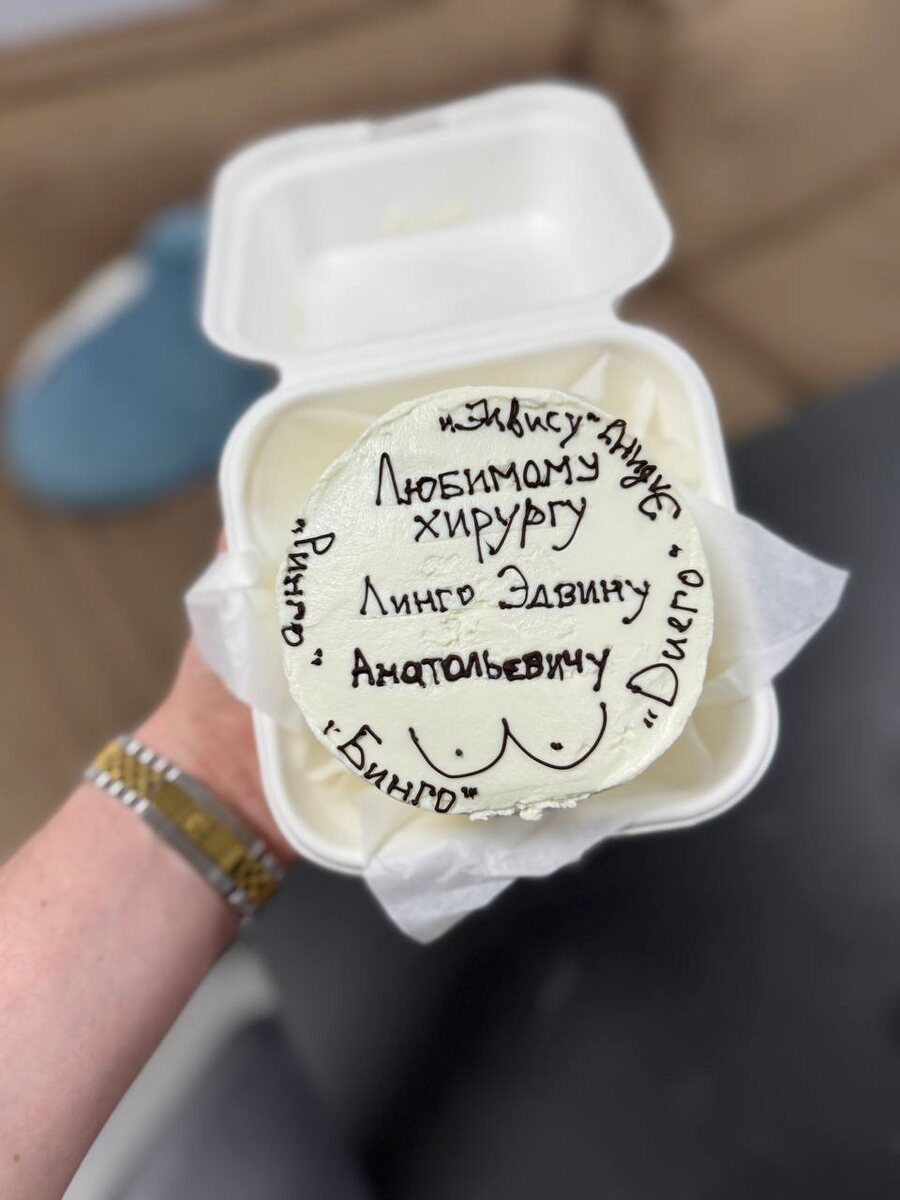 "Элвису"
Эдвину
Любимому
хирургу
Линго Эдвину
Анатольевичу
"Ринго"
"Диего"
"Бинго"